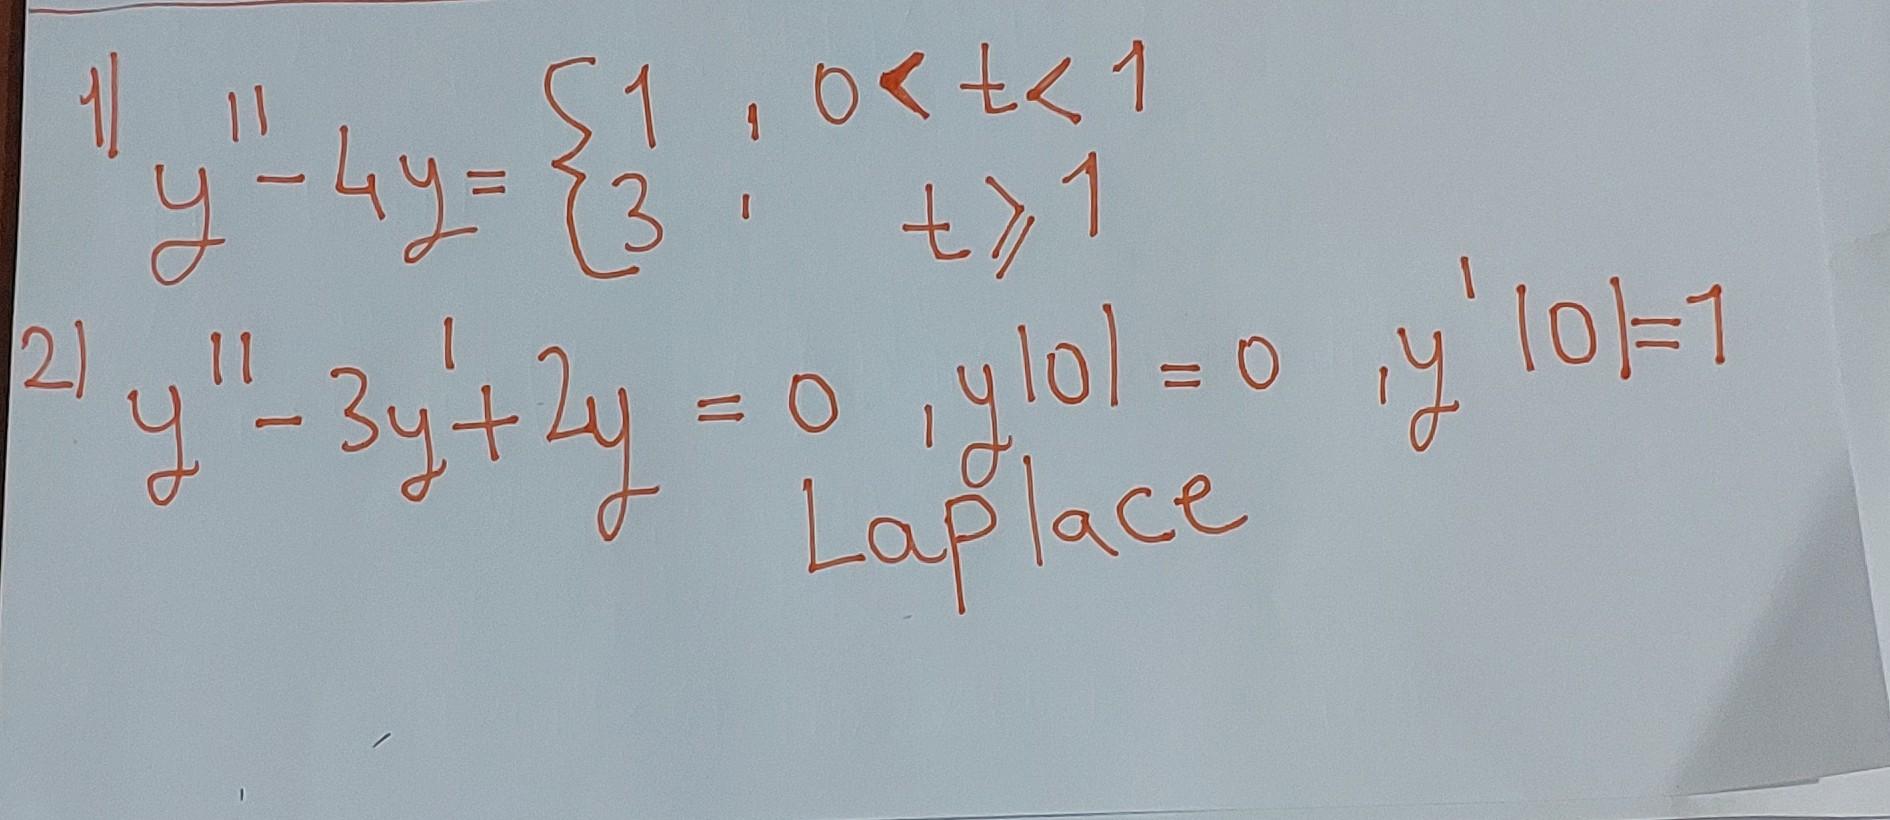 1) y'' - 4y = { 1 , 0 < t < 1
3 , t ⩾ 1
2) y'' - 3y' + 2y = 0 , y(0) = 0 , y'(0) = 1
Laplace